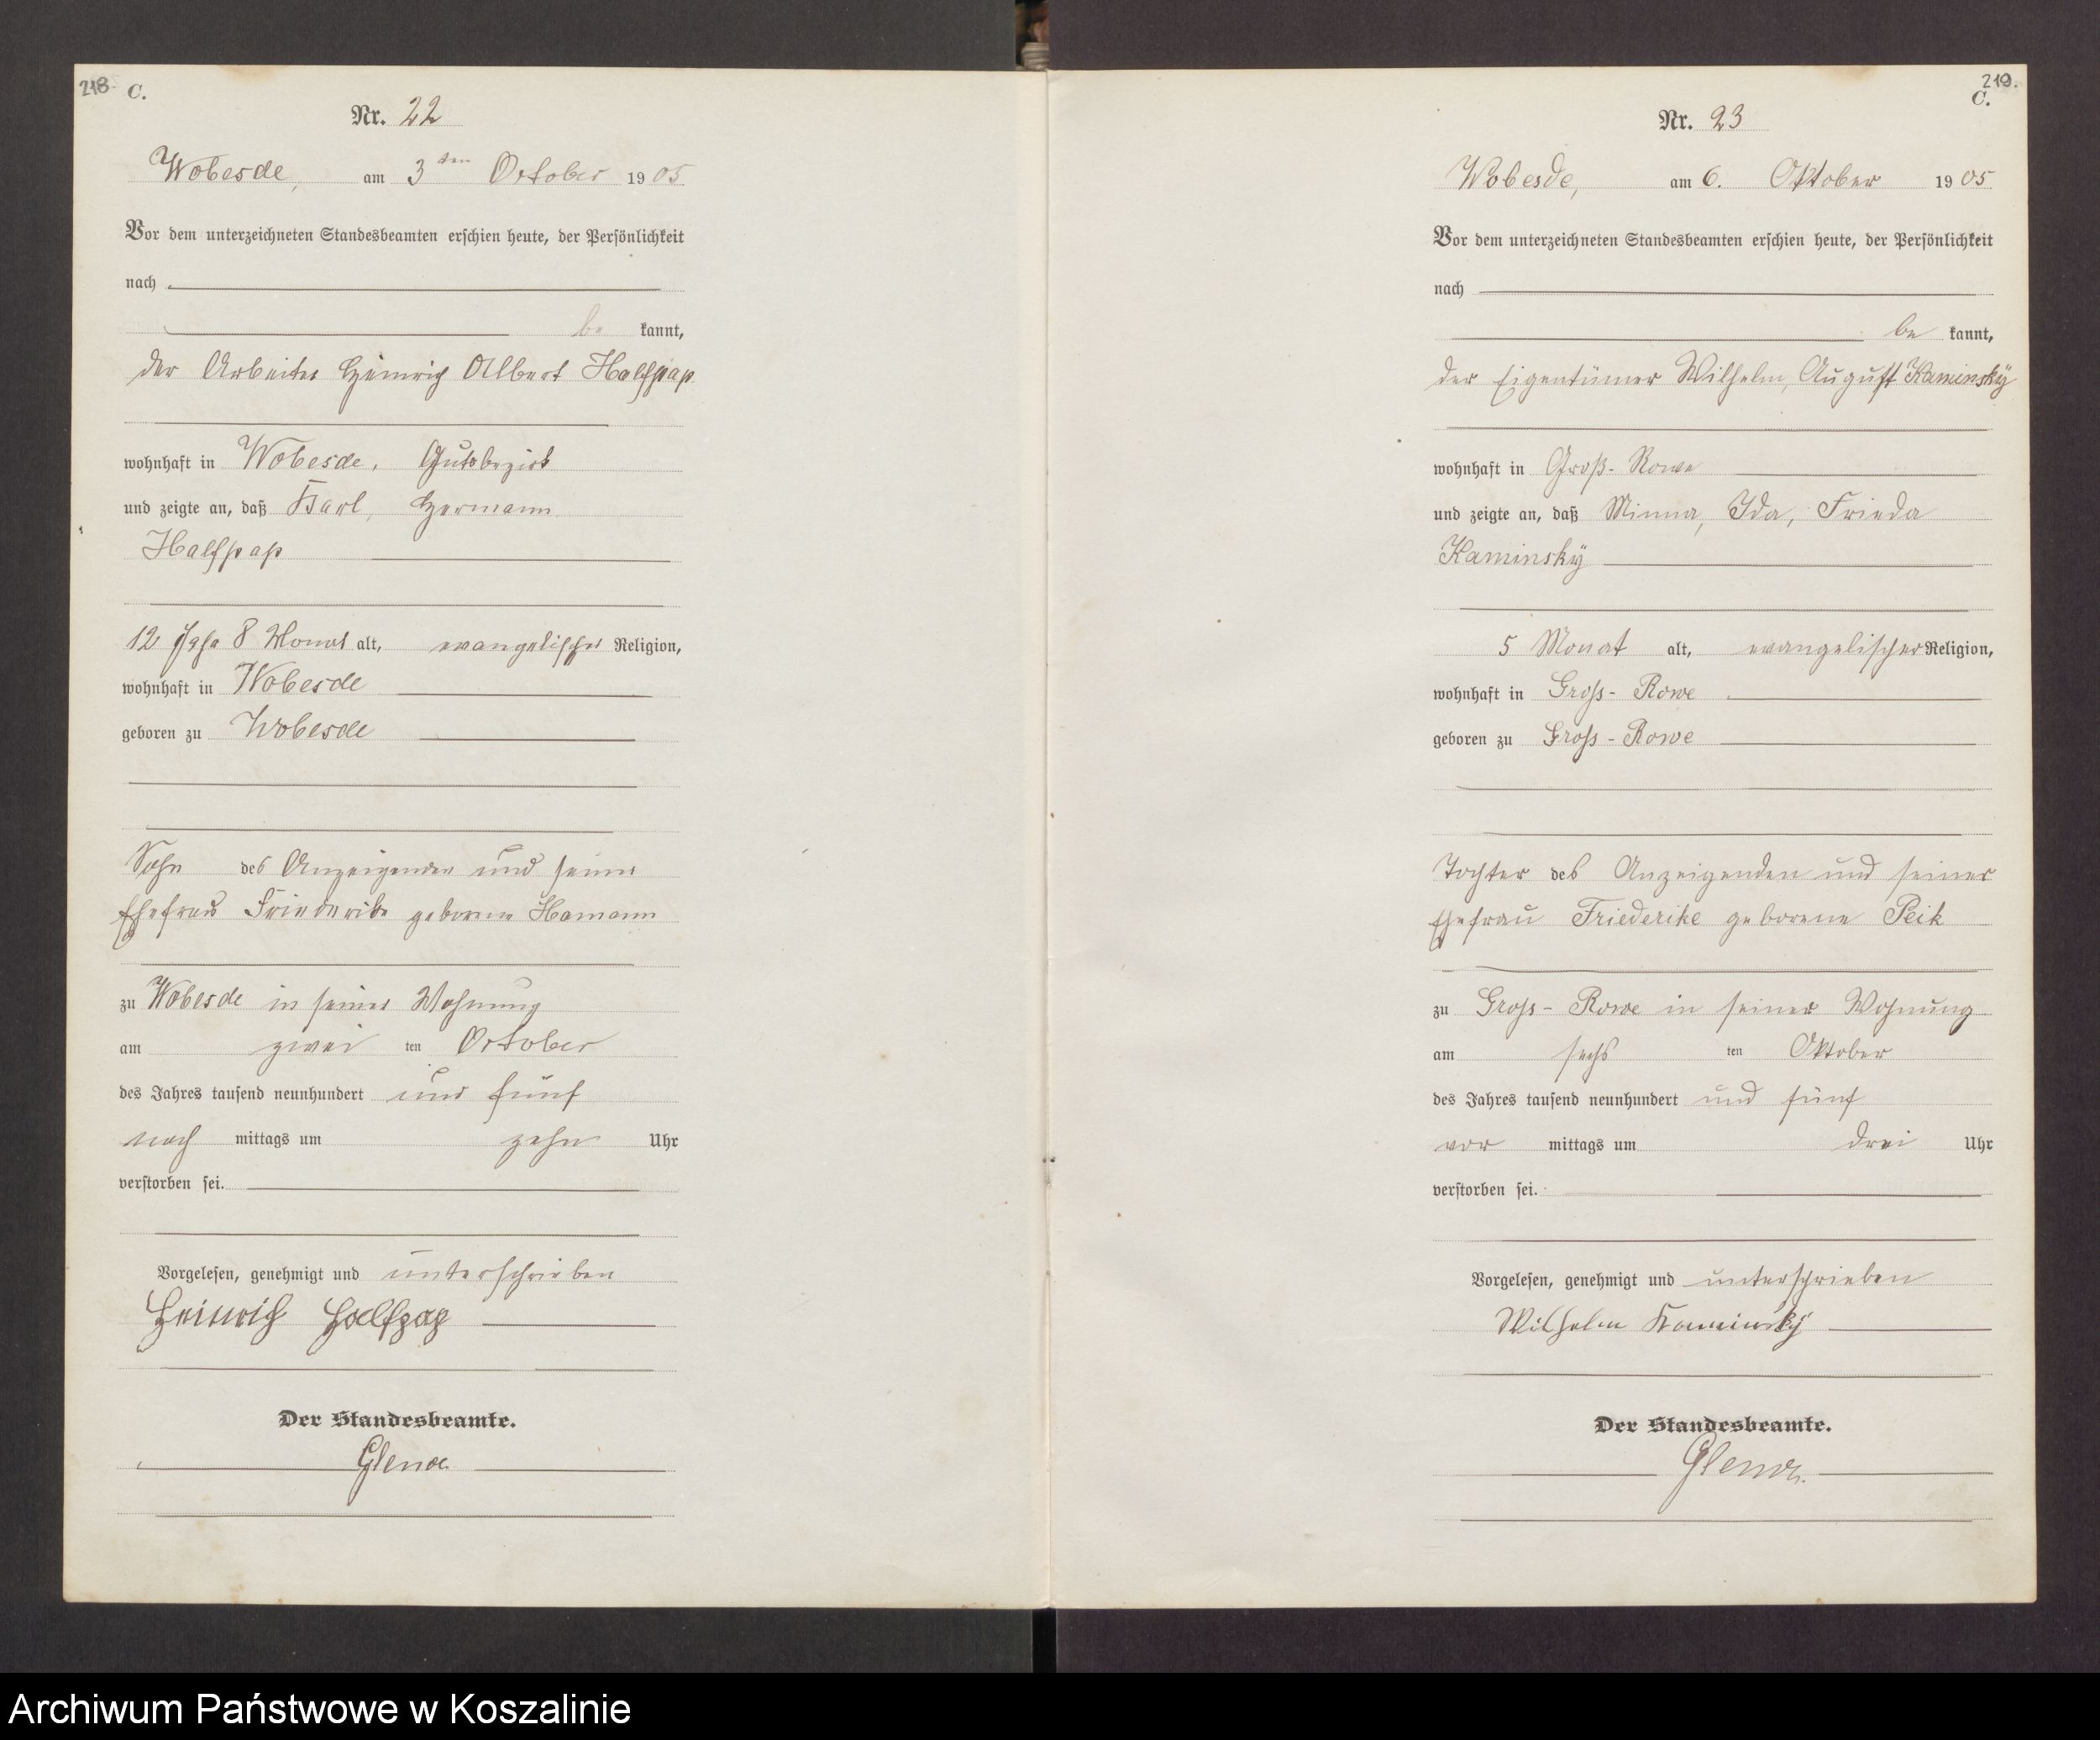 218.
C.
Nr. 22
Wobesde, am 3ten October 1905
Vor dem unterzeichneten Standesbeamten erschien heute, der Persönlichkeit
nach
be kannt,
der Arbeiter Heinrich Albert Halfpap
wohnhaft in Wobesde, Gutsbezirk
und zeigte an, daß Karl, Hermann
Halfpap
12 Jahr 8 Monat alt, evangelischer Religion,
wohnhaft in Wobesde
geboren zu Wobesde
Sohn des Anzeigenden und seiner
Ehefrau Friederike geborene Hamann
zu Wobesde in seiner Wohnung
am zwei ten October
des Jahres tausend neunhundert und fünf
nach mittags um zehn Uhr
verstorben sei.
Vorgelesen, genehmigt und unterschrieben
Heinrich Halfpap
Der Standesbeamte.
219.
C.
Nr. 23
Wobesde, am 6. Oktober 1905
Vor dem unterzeichneten Standesbeamten erschien heute, der Persönlichkeit
nach
be kannt,
der Eigentümer Wilhelm, August Kaminsky
wohnhaft in Groß-Rowe
und zeigte an, daß Minna, Ida, Frieda
Kaminsky
5 Monat alt, evangelischer Religion,
wohnhaft in Gross-Rowe
geboren zu Gross-Rowe
Tochter des Anzeigenden und seiner
Ehefrau Friederike geborene Peik
zu Gross-Rowe in seiner Wohnung
am sechs ten Oktober
des Jahres tausend neunhundert und fünf
vor mittags um drei Uhr
verstorben sei.
Vorgelesen, genehmigt und unterschrieben
Wilhelm Kaminsky
Der Standesbeamte.
Archiwum Państwowe w Koszalinie